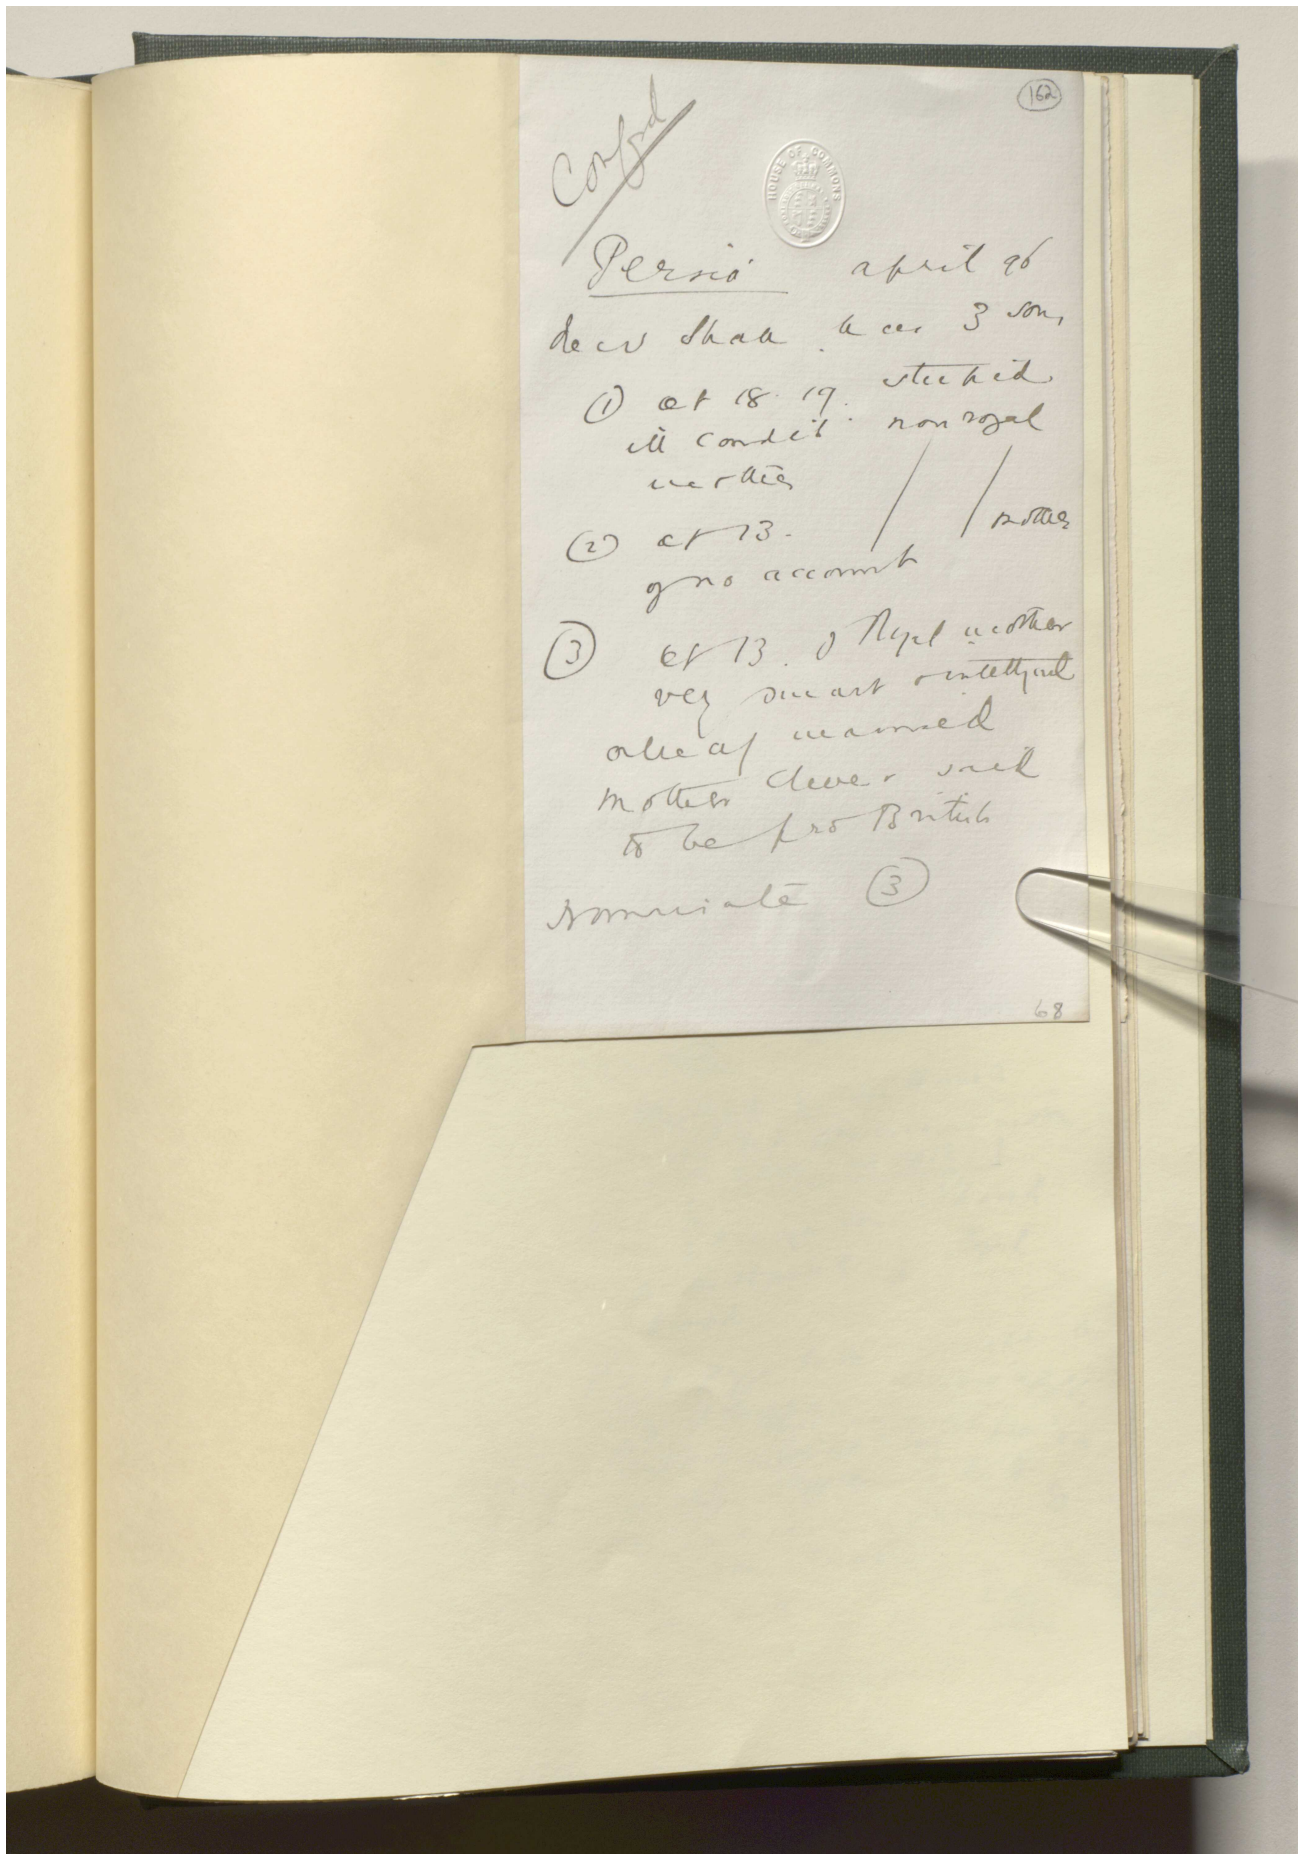 162
Confid
HOUSE OF COMMONS
Persia april 96
New Shah has 3 sons
① æt 18. 19. stupid
ill condit non royal
mother
② æt 13. mother
of no account
③ æt 13. of Royal mother
very smart & intelligent
already married
mother clever said
to be pro British
nominate ③
68